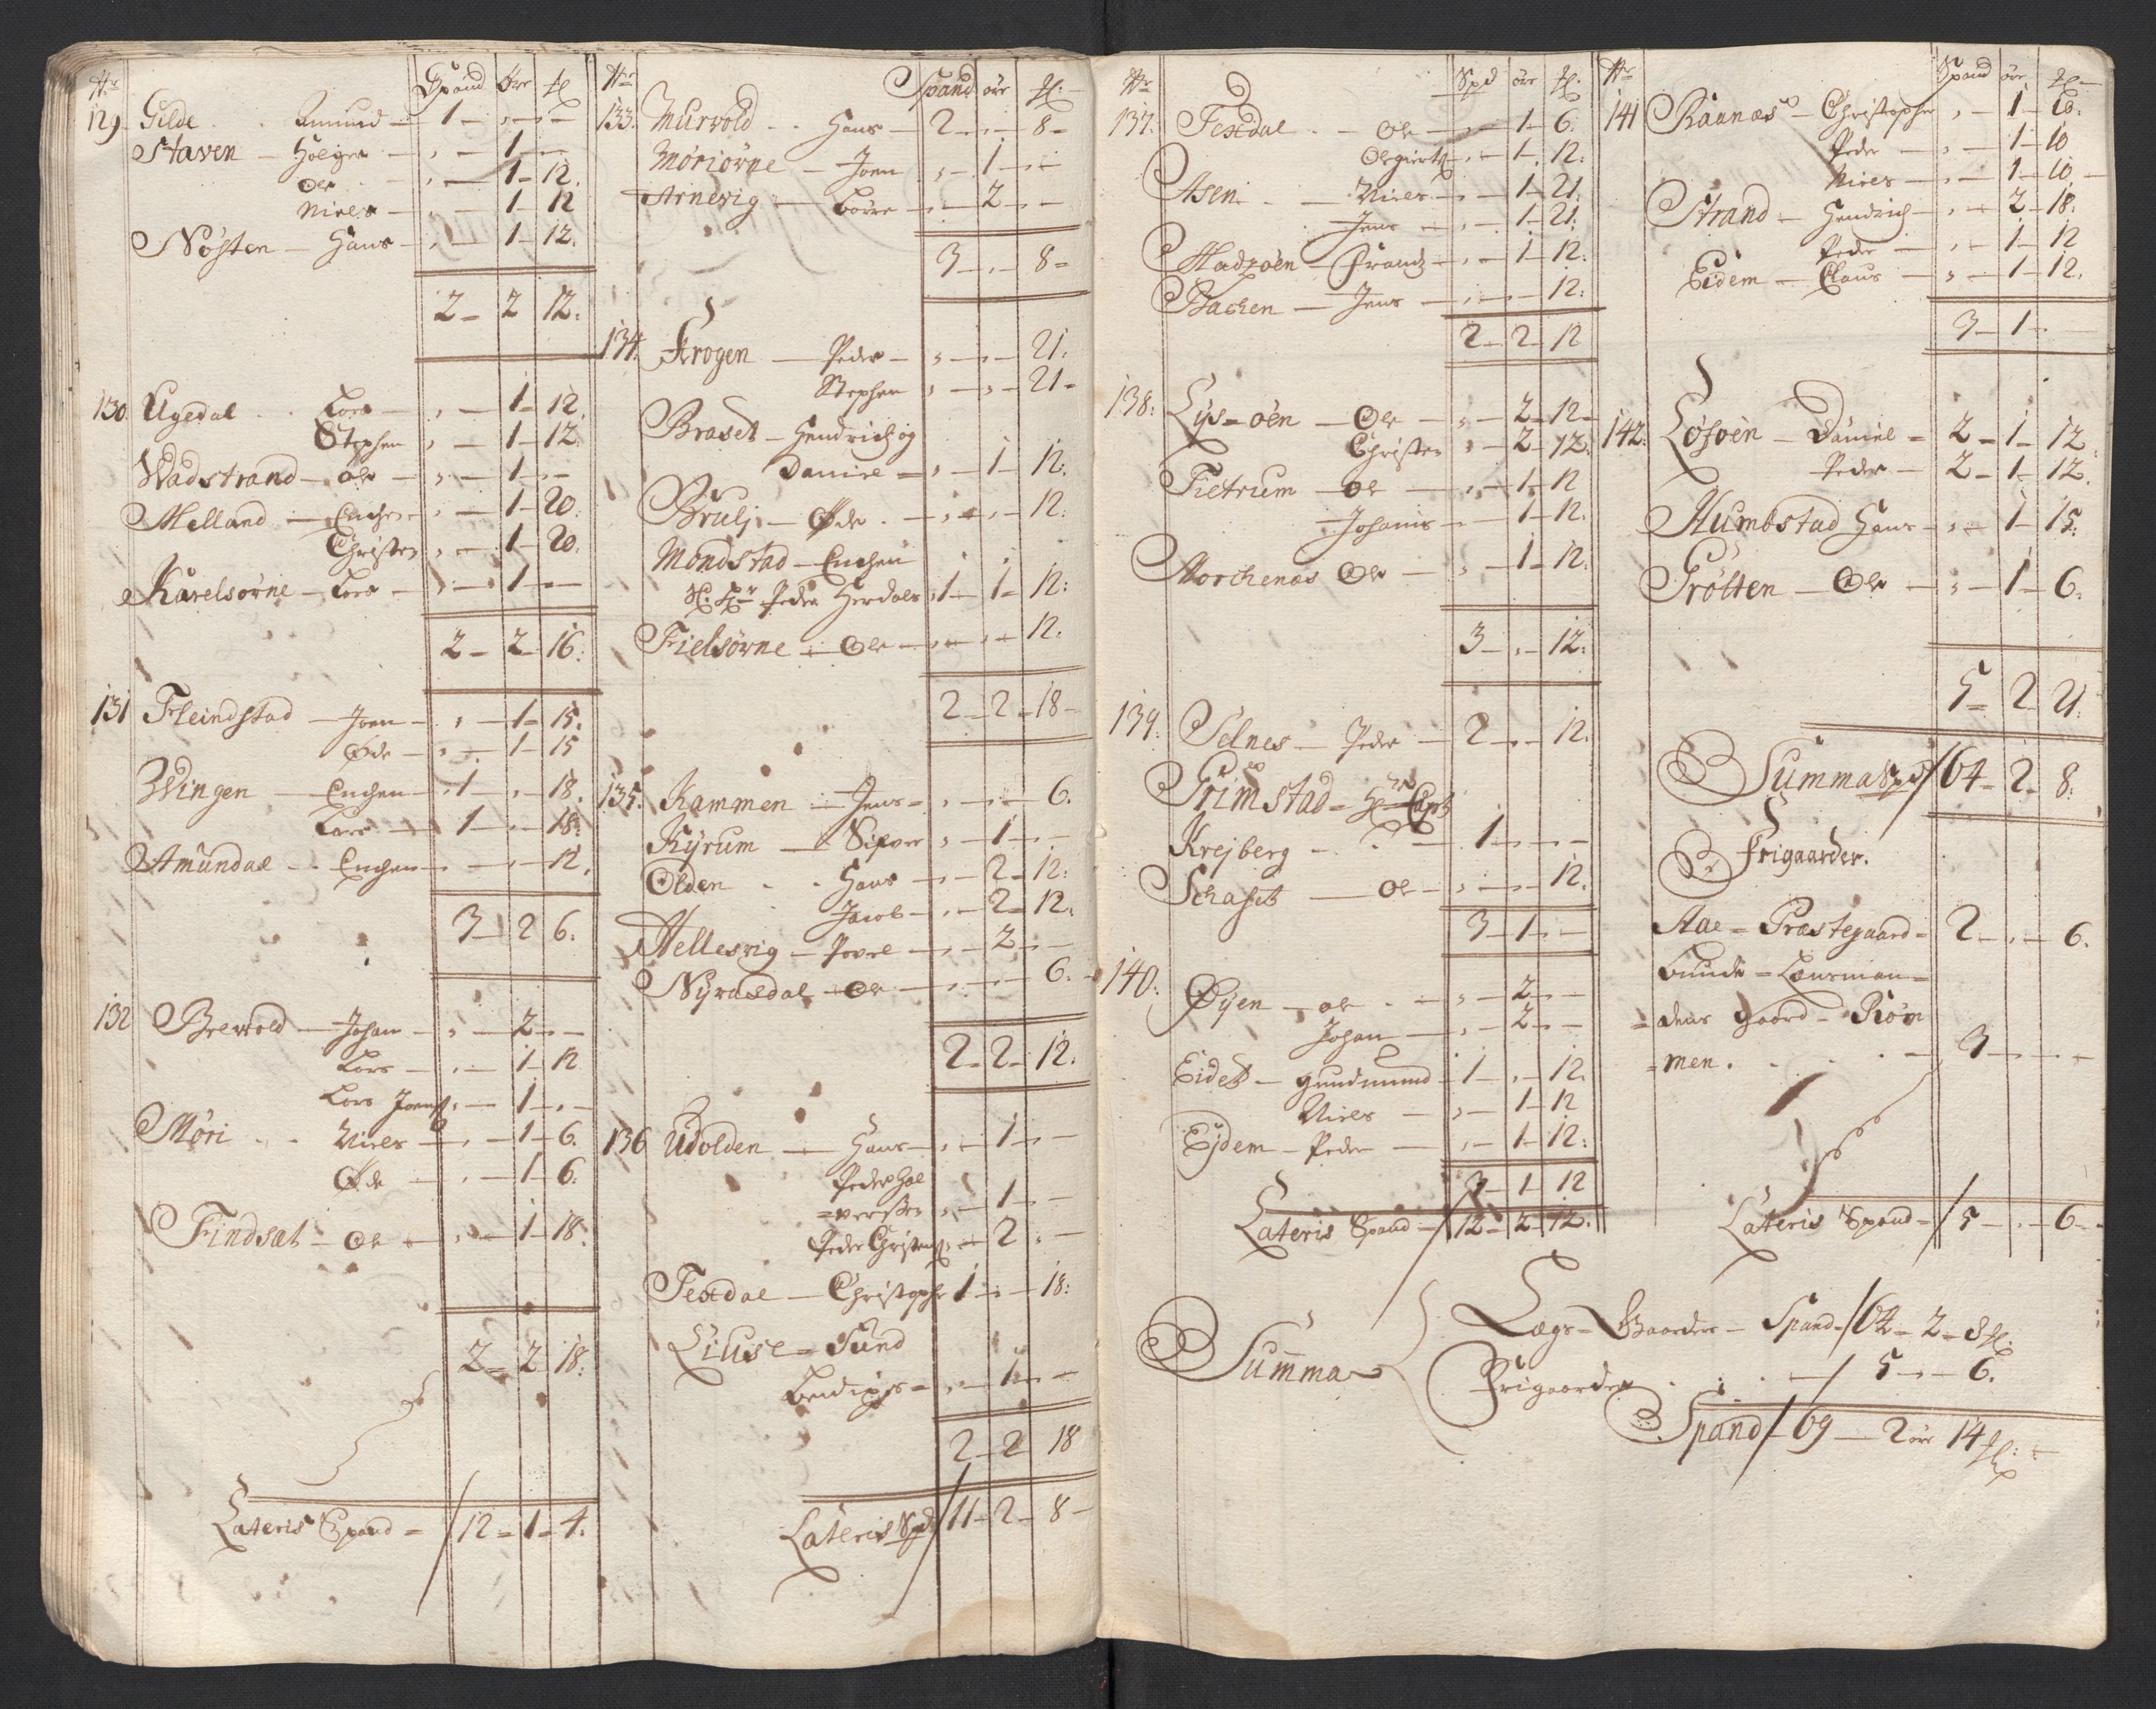 Nr Spand Öre
129 Gilde Amund 1
Staven Holger 1
Ole 1 12.
Niels 1 12
Nøsten Hans 1 12.
2 2 12.
130. Ugedal Lars 1 12.
Stephen 1 12.
Wadstrand Ole 1
Melland 1 20.
Christen 1 20.
Karelsørne Lars 1
2 2 16.
131 Fleindstad Joen 1 15.
Øde 1 15
Wingen 1 18.
Lars 1 18.
Amundal 12.
3 2 6.
132 Brevold Johan 2
Lars 1 12
Lars Joens 1
Möri Niels 1 6.
Øde 1 6.
Findsæt Ole 1 18.
2 2 18.
Lateris Spand 12 1 4.
Nr Spand öre
133. Murvold Hans 2 8
Möriörne Joen 1
Arnevig 2
3 8
134. Krogen Peder 21.
Stephen 21
Braset Hendrich og
Daniel 1 12.
Brulj Øde 12.
Mondstad
Peder Herdals 1 1 12.
Fielsörne Ole 12.
2 2 18
135. Kammen Jens 6.
Kyrum Sifver 1
Olden Hans 2 12.
Jacob 2 12.
Hellesvig Povel 2
Nyrasdal Ole 6.
2 2 12.
136 Udolden Hans 1
Peder Hal
=versen 1
Peder Christens 2
Texdal Christopher 1 18.
Liuse Sund
1
2 2 18
Lateris Spd 11 2 8
Nr Spd öre
137. Texdal Ole 1 6.
1 12.
Asen Niels 1 21.
Jens 1 21.
Madzøen Frandz 1 12.
Bachen Jens 12.
2 2 12
138. Lys=øen Ole 2 12
Christen 2 12.
Tietrum Ole 1 12
Johanis 1 12.
Morchenas Ole 1 12.
3 12.
139. Selnes Peder 2 12.
Grimstad Capt
Krejberg 1
Schaset Ole 12.
3 1
140. Øyen Ole 2
Johan 2
Eidet Gundmund 1 12.
Niels 1 12
Ejdem Peder 1 12.
3 1 12
Lateris Spand 12 2 12.
Nr Spand öre
141 Raanæs Christopher 1 10.
Peder 1 10
Niels 1 10
Strand Hendrich 2 18.
Peder 1 12
Eidem Claus 1 12.
3 1
142. Løsøen Daniel 2 1 12
Peder 2 1 12.
Humbstad Hans 1 15.
Grötten Ole 1 6.
5 2 21.
Summa Spd 64 2 8.
Frigaarder.
Aae Præstegaard 2 6.
Lensman=
=dens gaard Röm
=men. 3
Lateris Spand 5 6
Summa
Lægs Gaarder Spand 64 2 8
Frigaarder 5 6.
Spand 69 2 öre 14